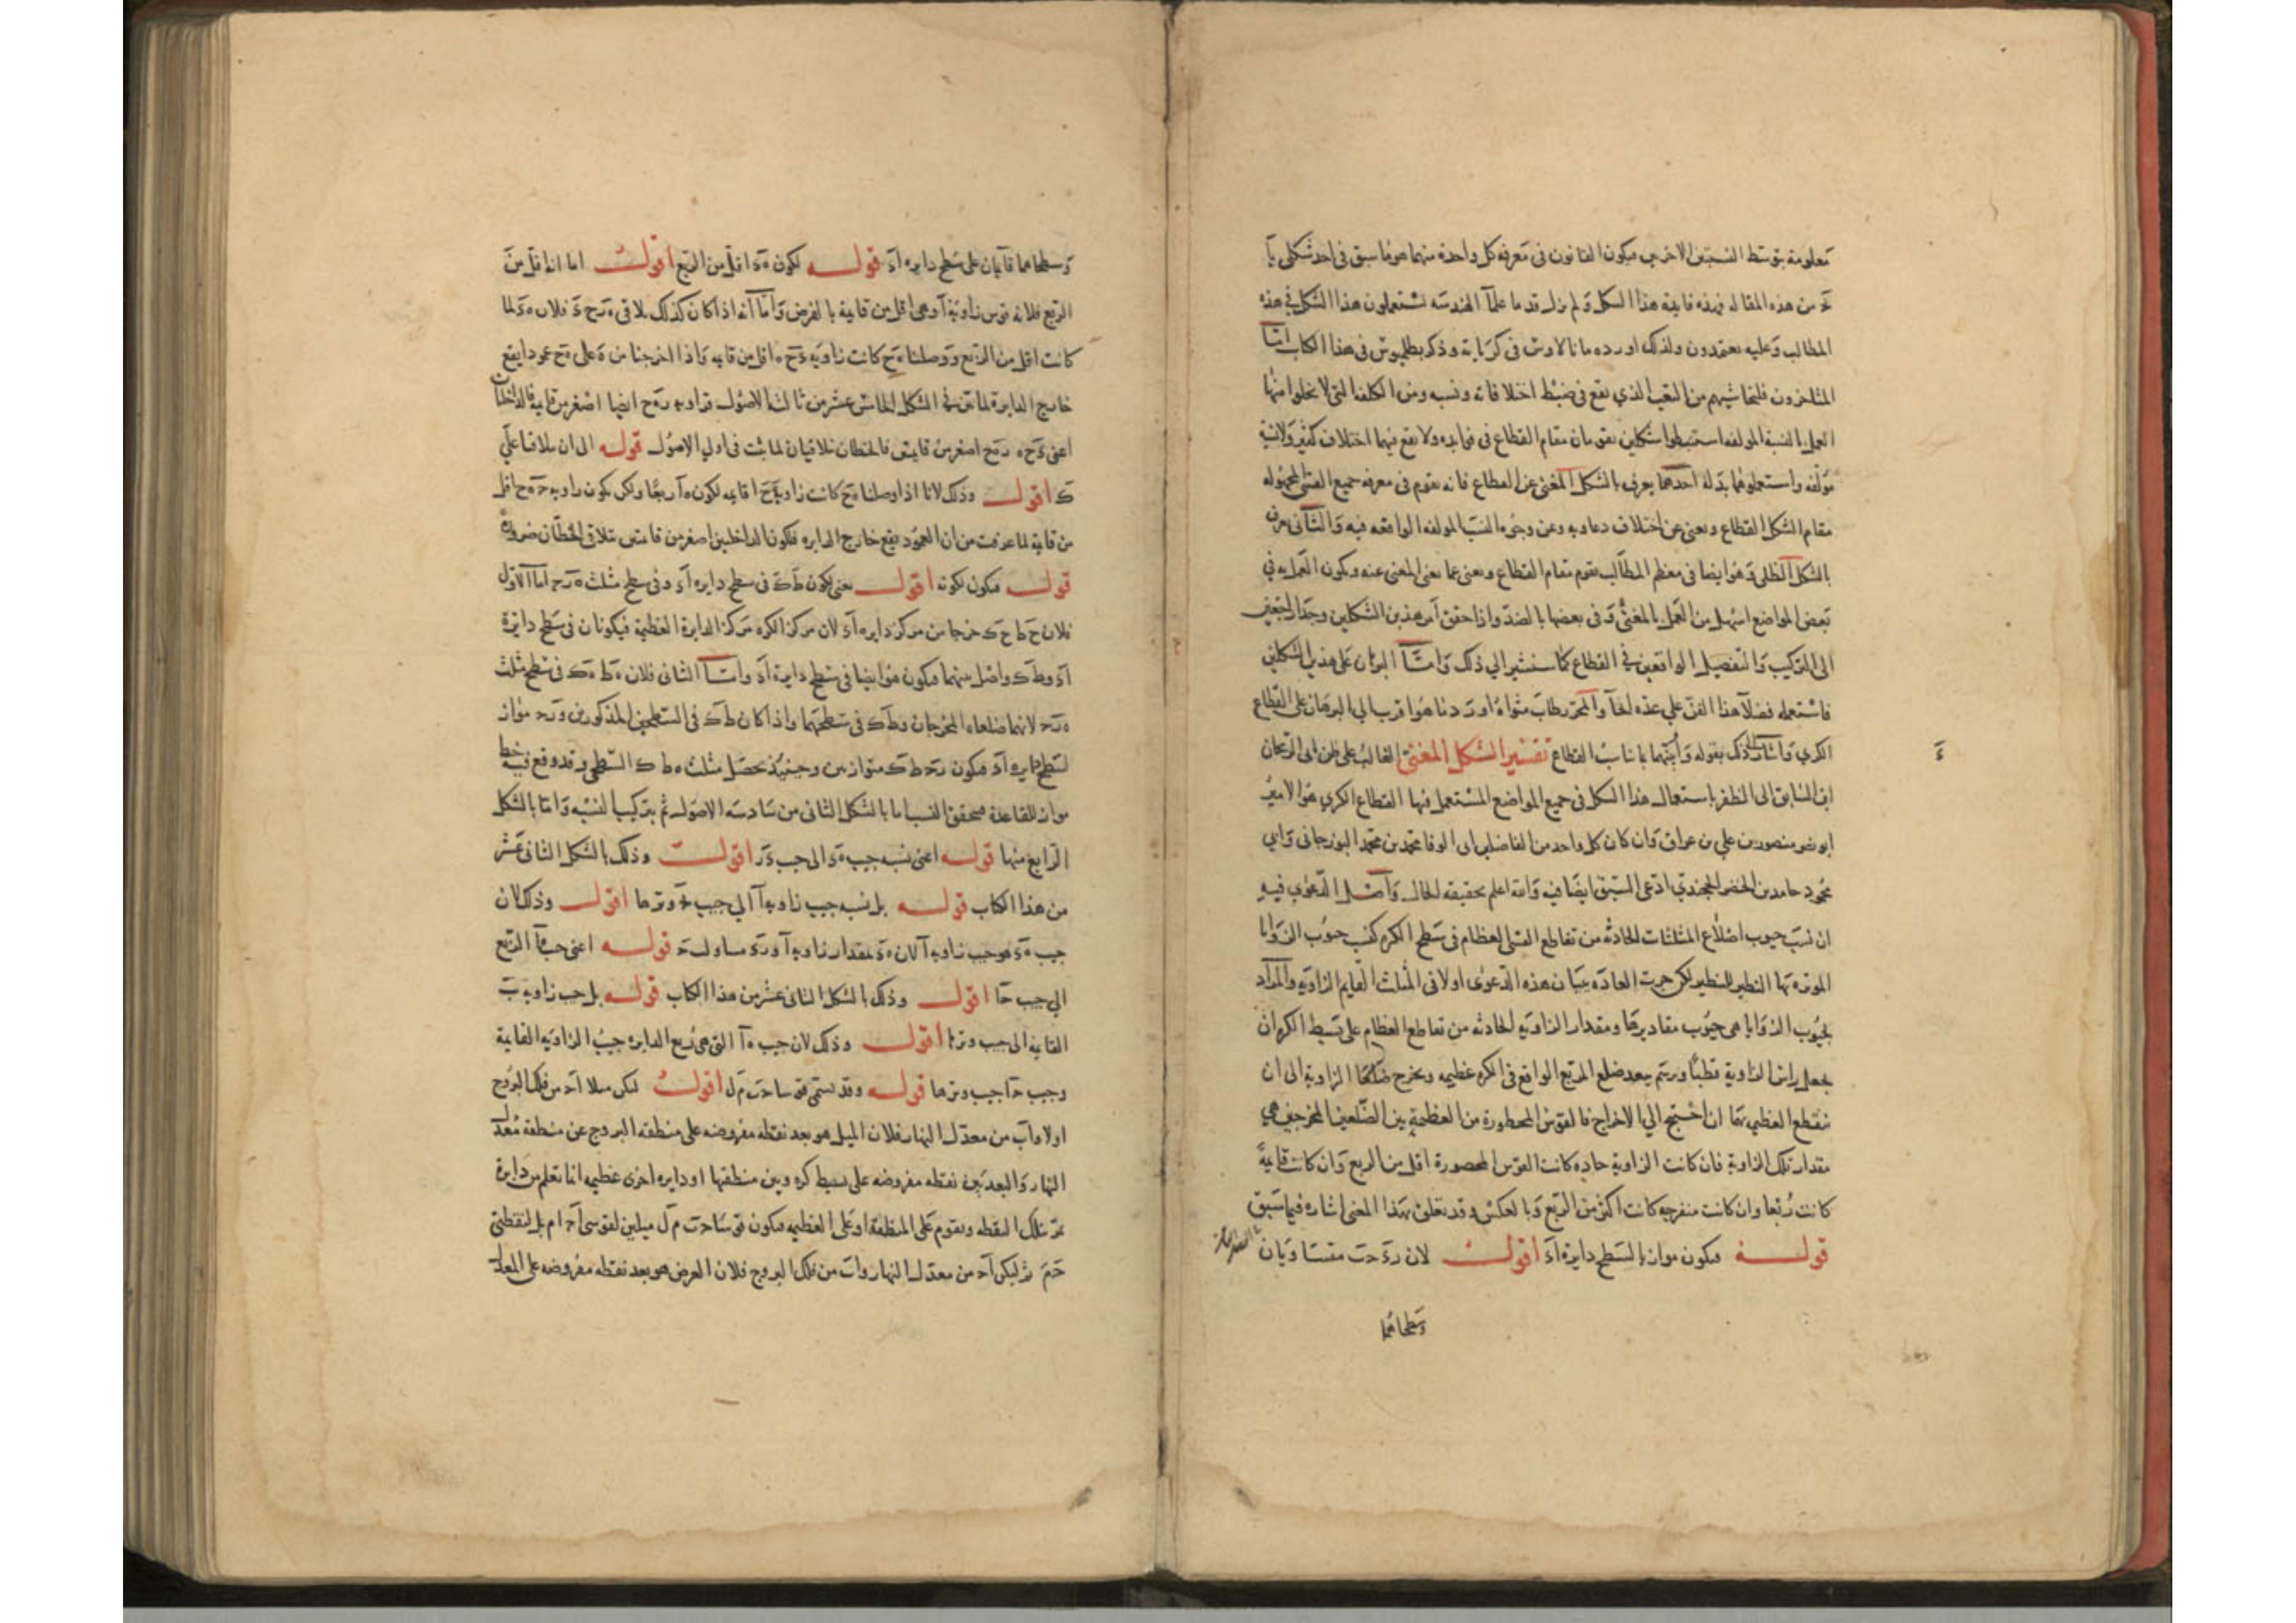 معلومة بتوسط النسبتين الاخريين فيكون القانون في معرفة كل واحدة منهما هو ما سبق في احد شكلي يا
من هذه المقالة فهذه فايدة هذا الشكل ولم يزل قدماء علماء الهندسه يستعملون هذا الشكل في هذه
المطالب وعليه يعتمدون ولذلك اورده مانالاوس في كرياته وذكره بطلميوس في هذا الكتاب واما
المتأخرون فلتحاشيهم من التعب الذي يقع في ضبط اختلافاته ونسبه ومن الكلفة التي لا يخلوا منها
العمل بالنسبة المولفه استنبطوا شكلين يقومان مقام القطاع في فوايده ولا يقع فيهما اختلاف كثير ولا نسبة
مولفه واستعملوهما بدله احدهما يعرف بالشكل المغنى عن القطاع فانه يقوم في معرفة جميع القسي المجهوله
مقام الشكل القطاع ويغنى عن اختلاف دعاويه وعن وجوه النسب المولفه الواقعه فيه والثانى يعرف
بالشكل الظلى وهو ايضا في معظم المطالب يقوم مقام القطاع ويغنى عما يغنى المغنى عنه ويكون العمل به في
بعض المواضع اسهل من العمل بالمغنى وفي بعضها بالضد واذا حقق امر هذين الشكلين وجدا راجعين
الى التركيب والتفصيل الواقعين في القطاع كما سنشير الي ذلك واما البرهان على هذين الشكلين
فاستعمله فضلا هذا الفن علي عدة انحا والمحرر طاب مثواه اورد ما هو اقرب الي البرهان على القطاع
الكري واشار الى ذلك بقوله وابينهما بما يناسب القطاع تفسير الشكل المغنى الغالب على ظن ابى الريحان
ان السابق الى الظفر باستعمال هذا الشكل في جميع المواضع المستعمل فيها القطاع الكري هو الامير
ابو نصر منصور بن علي بن عراق وان كان كل واحد من الفاضلين ابى الوفا محمد بن محمد البوزجاني وابي
محمود حامد بن الخضر الخجندي ادعى السبق ايضا فيه والله اعلم بحقيقة الحال واصل الدعوي فيه
ان نسب جيوب اضلاع المثلثات الحادثه من تقاطع القسي العظام في سطح الكره كنسب جيوب الزوايا
الموترة بها النظير للنظير لكن جرت العادة ببيان هذه الدعوى اولا في المثلث القايم الزاوية والمراد
بجيوب الزوايا هي جيوب مقاديرها ومقدار الزاوية الحادثه من تقاطع العظام على بسيط الكره ان
يجعل راس الزاوية قطبا ورسم ببعد ضلع المربع الواقع في الكره عظيمه ويخرج ضلعا الزاوية الى ان
تنقطع العظيمه بهما ان احتيج الي الاخراج فالقوس المحصورة من العظيمة بين الضلعين المخرجين هي
مقدار تلك الزاوية فان كانت الزاوية حاده كانت القوس المحصورة اقل من الربع وان كانت قايمة
كانت ربعا وان كانت منفرجه كانت اكثر من الربع وبالعكس وقد تعلق بهذا المعنى اشاره فيما سبق
قوله فيكون موازيا لسطح دايرة آء اقول لان ر حت متساويان
وسطحاهما
وسطحاهما قايمان على سطح دايره آء قوله لكون هء اقل من الربع اقول اما انه اقل من
الربع فلانه قوس زاوية آ وهى اقل من قايمة بالفرض واما انه اذا كان كذلك يلاقى فلان هء لما
كانت اقل من الربع ووصلنا هح كانت زاوية ءحه اقل من قايمه واذا اخرجنا من ه على هح عمودا يقع
خارج الدايرة لما مر في الشكل الخامس عشر من ثالثة الاصول فزاوية ايضا اصغر من قايمة فالداخلتان
اعنى اصغر من قايمتين فالخطان يتلاقيان لما ثبت في اولي الاصول قوله الى ان يتلاقيا على
ك اقول وذلك لانا اذا وصلنا هح كانت زاوية قايمه لكون هآ ربعا ولكن يكون زاوية اقل
من قايمة لما عرفت من ان العمود يقع خارج الدايره فتكون الداخلتين اصغر من قايمتين يتلاقي الخطان ضرورة
قوله فيكون لكونه اقول يعنى لكون طك فى سطح دايره آء وفى سطح مثلث اما الاول
فلان حط حك خرجا من مركز دايره آء لان مركز الكره مركز الدايرة العظيمة فيكونان فى سطح دايرة
آء وطك واصل بينهما فيكون هو ايضا فى سطح دايرة آء واما الثانى فلان هط هك فى سطح مثلث
لانهما ضلعاه المخرجان وطك فى سطحهما واذا كان طك فى السطحين المذكورين ور مواز
لسطح دايره آء فيكون طك متوازيين وحينئذ يحصل مثلث هطك السطحى وقد وقع فيه خط
مواز للقاعدة فتحقق النسب اما بالشكل الثانى من سادسه الاصول ثم بتركيب النسبه واما بالشكل
الرابع منها قوله اعنى نسبه جيب هء الى جيب اقول وذلك بالشكل الثانى عشر
من هذا الكتاب قوله بل نسبه جيب زاوية آ الي جيب وترها اقول وذلك لان
جيب هء هو جيب زاوية آ لان هء مقدار زاوية آ مساو قوله اعنى جيب هآ الربع
الي جيب حآ اقول وذلك بالشكل الثانى عشر من هذا الكتاب قوله بل جيب زاوية ب
القايمة الى جيب وترها اقول وذلك لان جيب هآ التى هى ربع الدايره جيب الزاوية القايمة
وجيب حآ جيب وترها قوله وقد تسمى قوسا حب مل اقول لتكن مثلا آح من فلك البروج
اولا واب من معدل النهار فلان الميل هو بعد نقطه مفروضه على منطقه البروج عن منطقة معدل
النهار والبعد بين نقطه مفروضه على بسيط كره وبين منطقتها او دايره اخرى عظيمه انما تعلم من دايرة
تمر بتلك النقطه وتقوم على المنطقة او على العظيمه فيكون قوسا حب مل ميلين لقوسى آح ام بل لنقطتى
حم ثم ليكن آح من معدل النهار واب من فلك البروج فلان العرض هو بعد نقطه مفروضه على المعدل